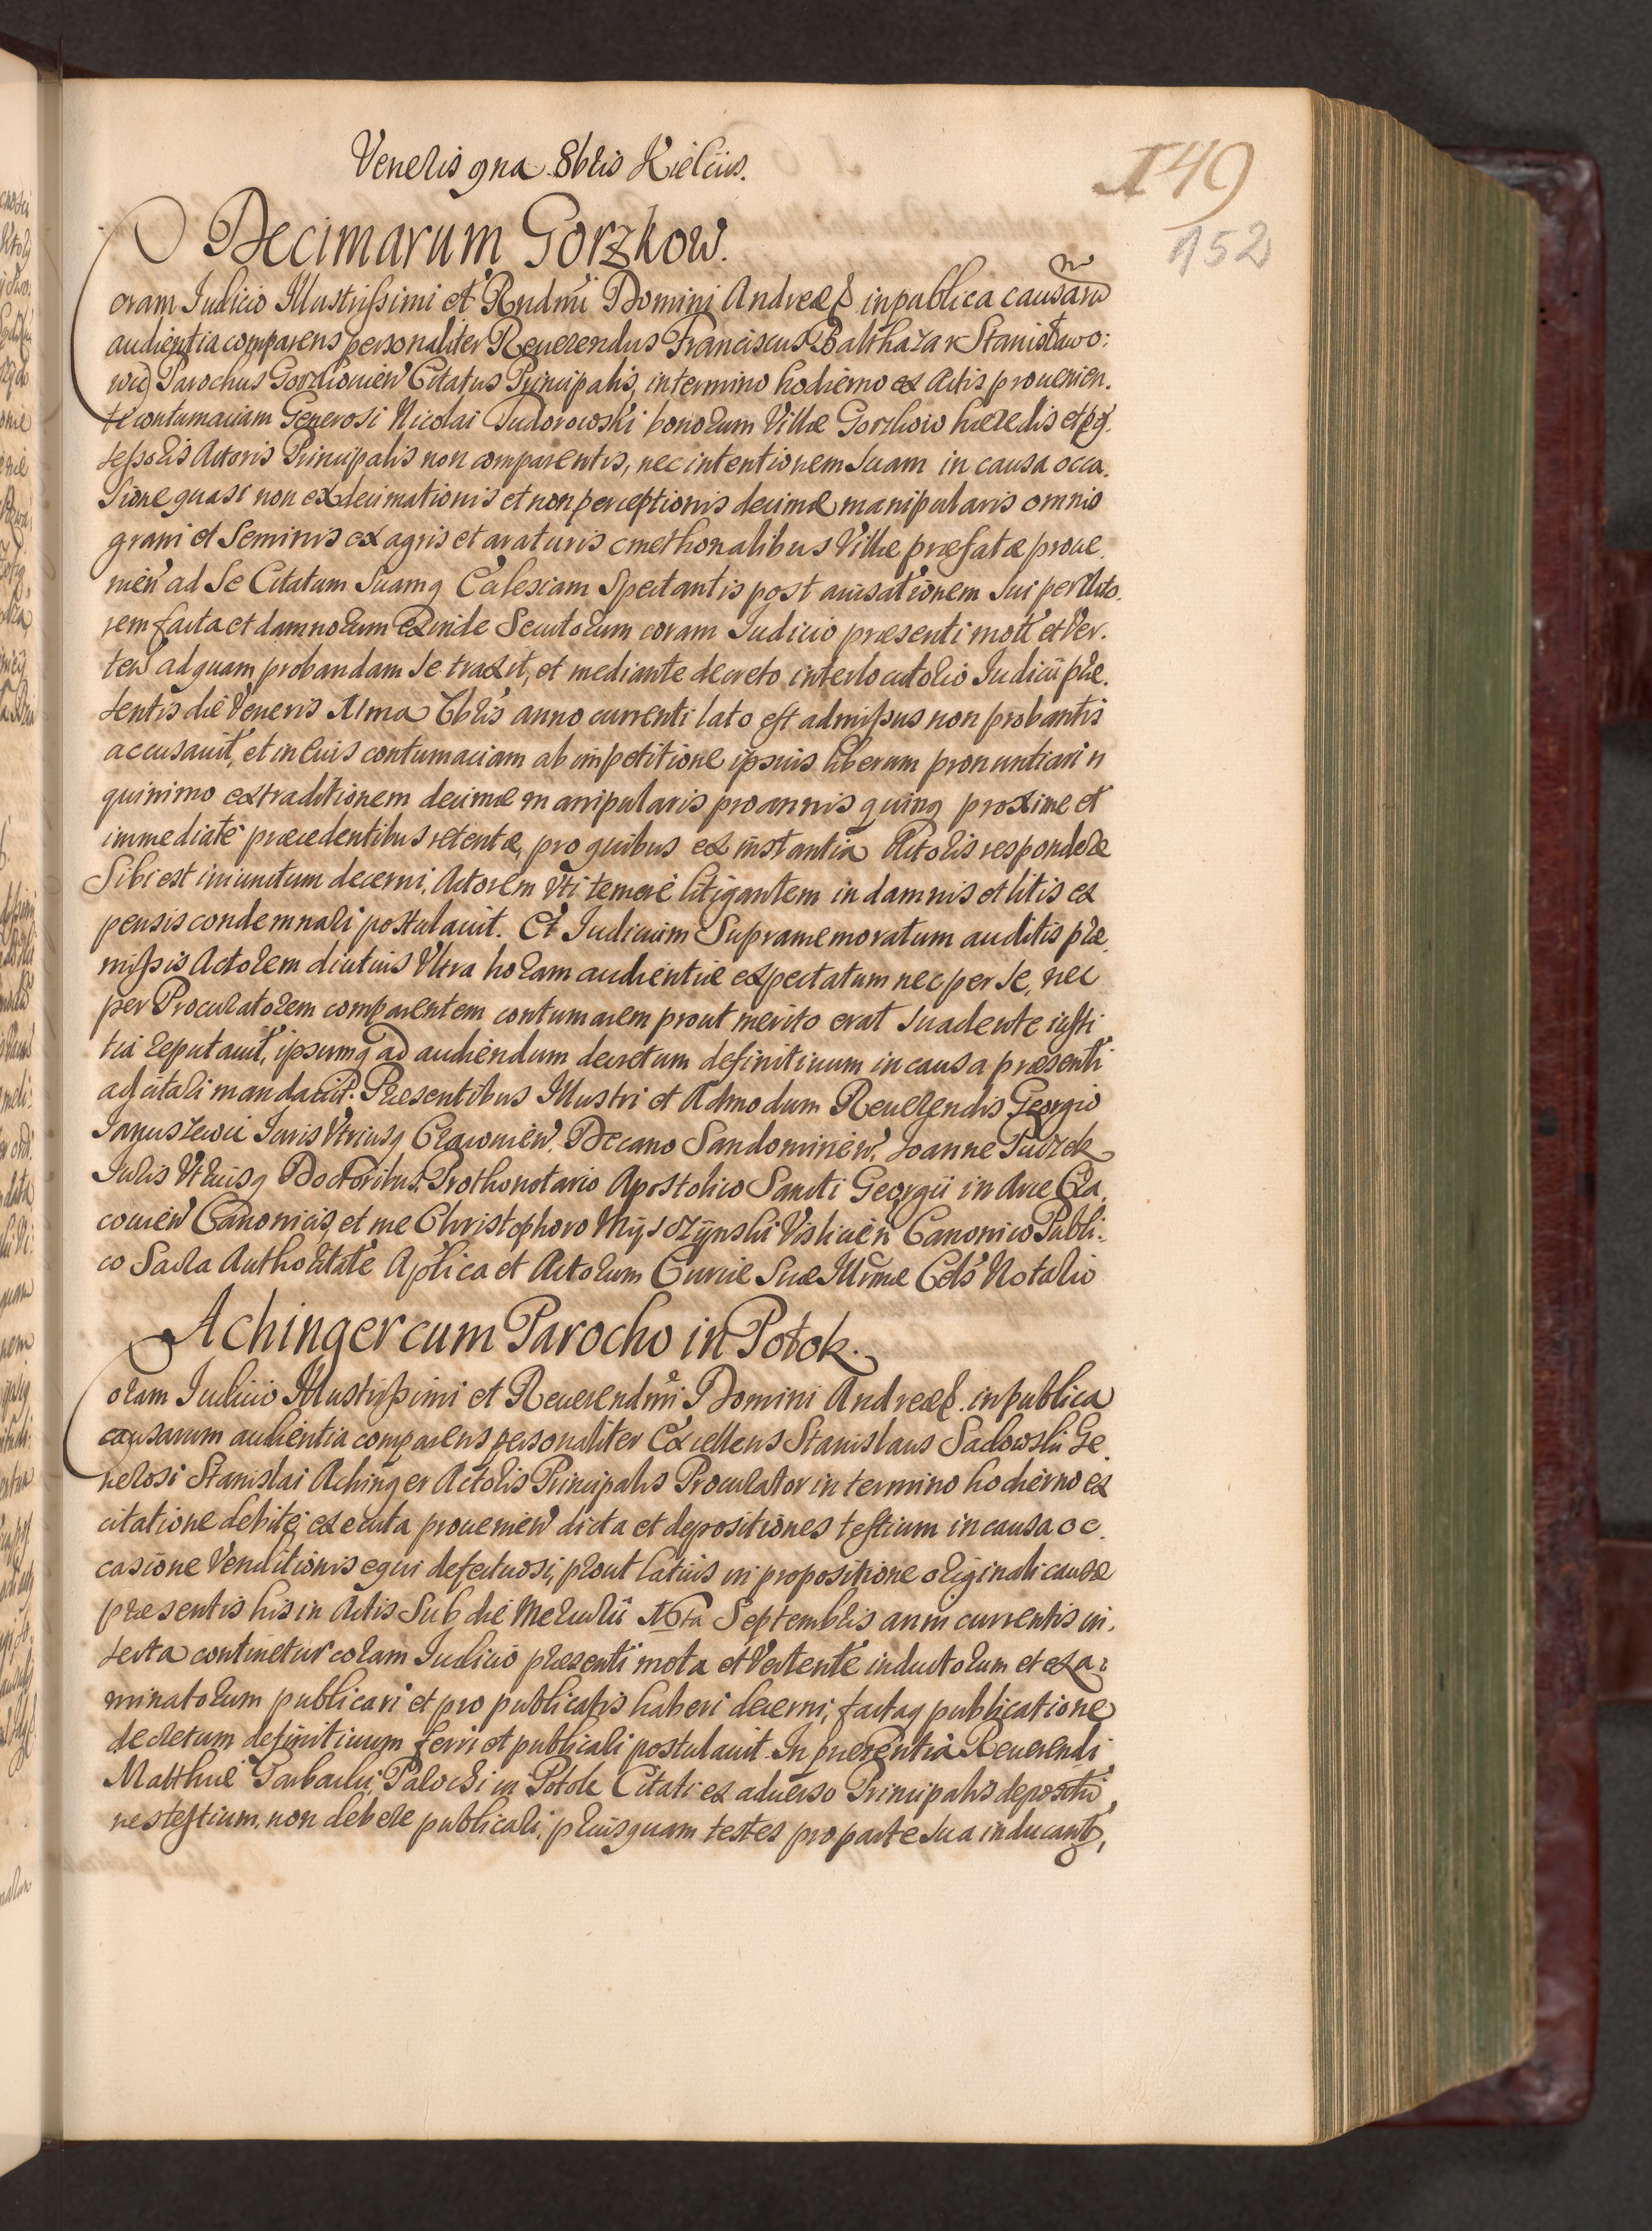 Veneris 9na 8bris Kielciis.
149
152
Decimarum Gorzkow.
Coram Iudicio Illustrissimi et Rndmi Domini Andreæ in publica causaru
audientia comparens personaliter Reuerendus Franciscus Balthazar Stanisławo:
wic Parochus Gorzkouien Citatus Principalis, in termino hodierno ex Actis prouenien.
te contumaciam Generosi Nicolai Sudorowski bonorum Villæ Gorzkow hæredis et pos
sessoris Actoris Principalis non comparentis, nec intentionem suam in causa occa.
sione quasi non exdecimationis et non perceptionis decimæ manipularis omnis
grani et Seminis ex agris et araturis cmethonalibus Villæ præfatæ proue
nien ad Se Citatum Suamq Eclesiam Spectantis post auisationem sui per Acto.
rem facta et damnorum Exinde Secutorum coram Iudicio præsenti mott et Ver.
ten ad quam probandam se traxit, et mediante decreto interlocutorio Iudicii præ.
sentis die Veneris XIma 7bris anno currenti lato est admissus non probantis
accusauit, et in eius contumaciam ab impetitione ipsius liberum pronuntiari
quinimo extraditionem decimæ manipularis pro annis quinq proxime et
immediate præcedentibus retentæ, pro quibus ex instantia Actoris respondere
Sibi est iniunctum decerni. Actorem Uti temere litigantem in damnis et litis ex
pensis condemnari postulauit. Et Iudicium Supramemoratum auditis præ.
missis Actorem diutius Ultra horam audientiæ expectatum nec per se, nec
per Procuratorem comparentem contumacem prout merito erat suadente iusti
tia reputauit, ipsumq ad audiendum decretum definitiuum in causa præsenti
adcitari mandauit. Præsentibus Illustri et Admodum Reuerendis Georgio
Januszewic Iuris Utriusq Cracouien. Decano Sandomirien. Joanne Pudzek
Iuris Utriusq Doctoribus Prothonotario Apostolico Sancti Georgii in Arce Cra.
couien Canonicis, et me Christophoro Myszczynski Visliciën Canonico Publi:
co Sacra Authoritate Aplica et Actorum Curiæ Suæ Illrmæ Cels Notario
Achinger cum Parocho in Potok.
Coram Iudicio Illustrissimi et Reuerendmi Domini Andreæ in publica
causarum audientia comparens personaliter Excellens Stanislaus Sadowski Ge
nerosi Stanislai Achinger Actoris Principalis Procurator in termino hodierno ex
citatione debite executa prouenien dicta et depositiones testium in causa oc.
casione Venditionis equi defectuosi, prout latius in propositione originali causæ
præsentis his in Actis Sub die Mercurii XVIta Septembris anni currentis in.
serta continetur coram Iudicio præsenti mota et Vertente inductorum et exa:
minatorum publicari et pro publicatis haberi decerni, factaq publicatione
decretum definitiuum ferri et publicari postulauit. In præsentia Reuerendi
Matthiæ Garbarski Parochi in Potok Citati ex aduerso Principalis depositio
nes testium non debere publicari, priusquam testes pro parte sua inducant,